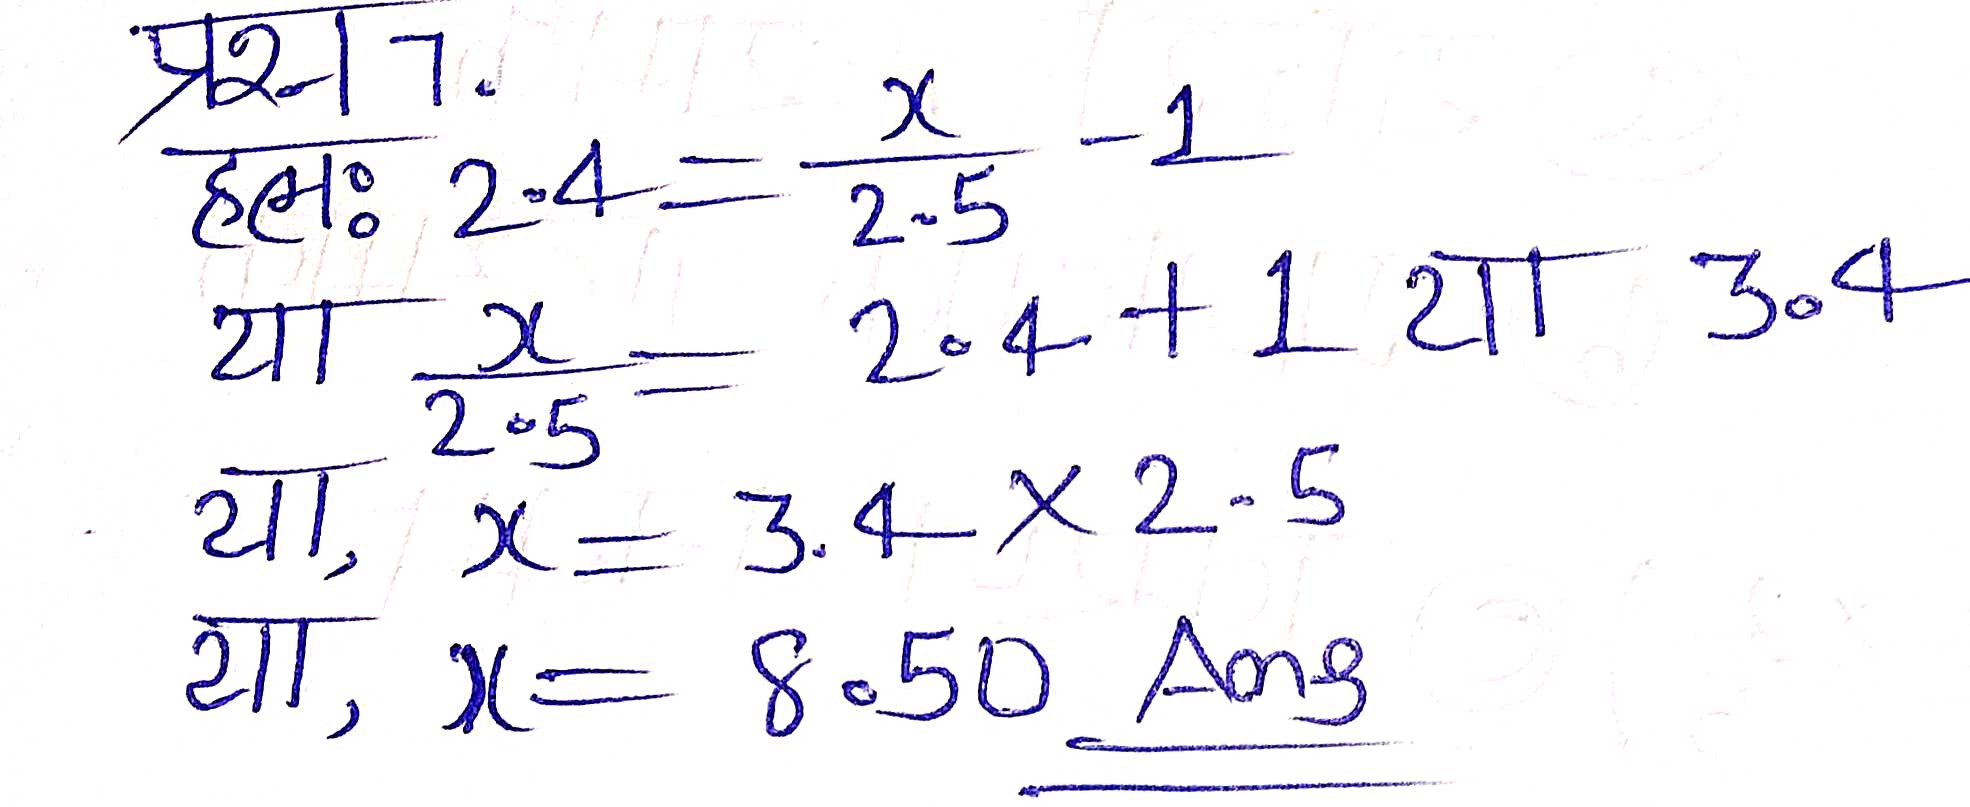 प्रश्न 7.
हलः 2.4 = x/2.5 - 1
या x/2.5 = 2.4 + 1 या 3.4
या, x = 3.4 × 2.5
या, x = 8.50 Ans